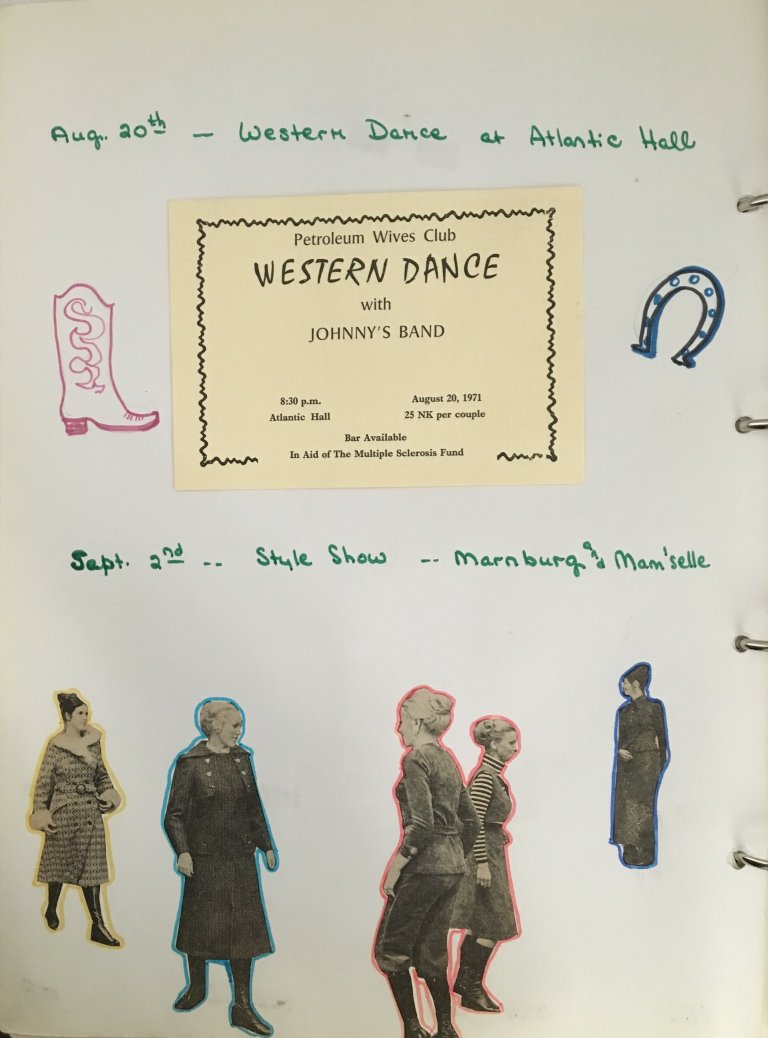 Aug. 20th — Western Dance at Atlantic Hall
Petroleum Wives Club
WESTERN DANCE
with
JOHNNY'S BAND
8:30 p.m. August 20, 1971
Atlantic Hall 25 NK per couple
Bar Available
In Aid of The Multiple Sclerosis Fund
Sept. 2nd -- Style Show -- Marnburg and Mam'selle